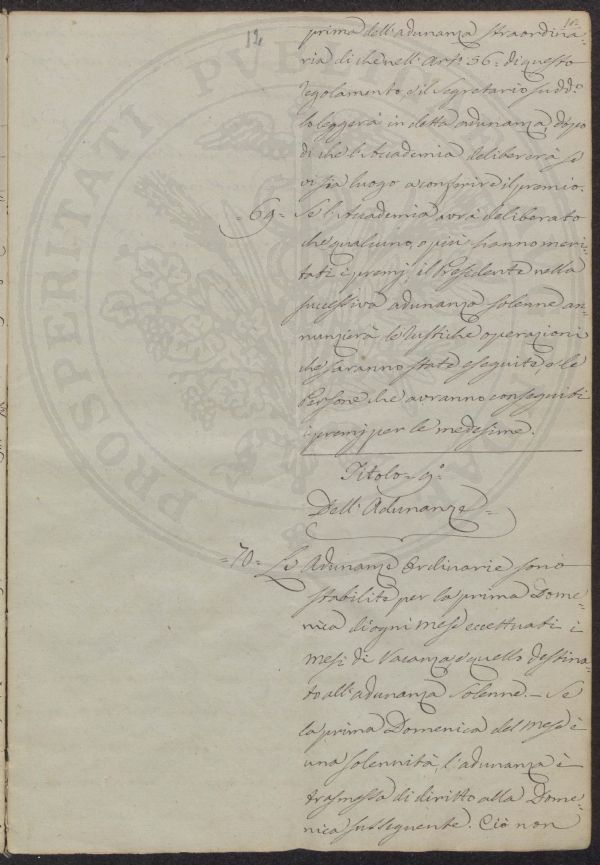 12
prima dell'adunanza straordina-
ria di che nell'Art.° 56= di questo
regolamento, e il Segretario sudd.°
lo leggerà in detta adunanza, dopo
di che l'Accademia delibererà se
vi sia luogo a conferire il premio.
=69= Se l'Accademia avrà deliberato
che qualcuno, o più hanno meri-
tati i premj, il Presidente nella
successiva adunanza solenne an-
nunzierà le rustiche operazioni
che saranno state eseguite, e le
Persone che avranno conseguiti
i premj per le medesime.
Titolo= 9°
Dell'Adunanze=
=70= Le Adunanze Ordinarie sono
stabilite per la prima Dome-
nica di ogni mese eccettuati i
mesi di Vacanza e quello destina-
to all'adunanza Solenne.— Se
la prima Domenica del mese è
una solennità, l'adunanza è
trasmessa di diritto alla Dome-
nica susseguente. Ciò non
PROSPERITATI PUBLICAE